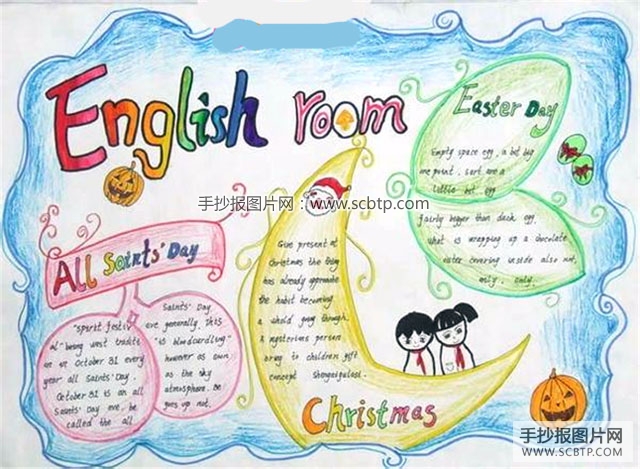 English room
手抄报图片网：www.scbtp.com
Easter Day
Empty space egg, a bit big
me point, sort are a
little bit egg
fairly bigger than duck egg,
what is wrapping up a chocolate
outer covering inside also not,
only, only.
All Saints' Day
"sparit festiv
al" being west traditi
on on October 31 every
year all Saints' Day,
October 31 is an all
Saints' Day eve, be
called the all
Saints' Day
eve generally. This
"is bloodcurdling"
however as own
as the sky
atmosphere. Be
goes up not.
Give present at
Christmas the thing
has already approximate
the habit becoming
a whold gang through.
A mysterious person
bring to children gift
concept Shengpigulasi
Christmas
手抄报图片网
WWW.SCBTP.COM